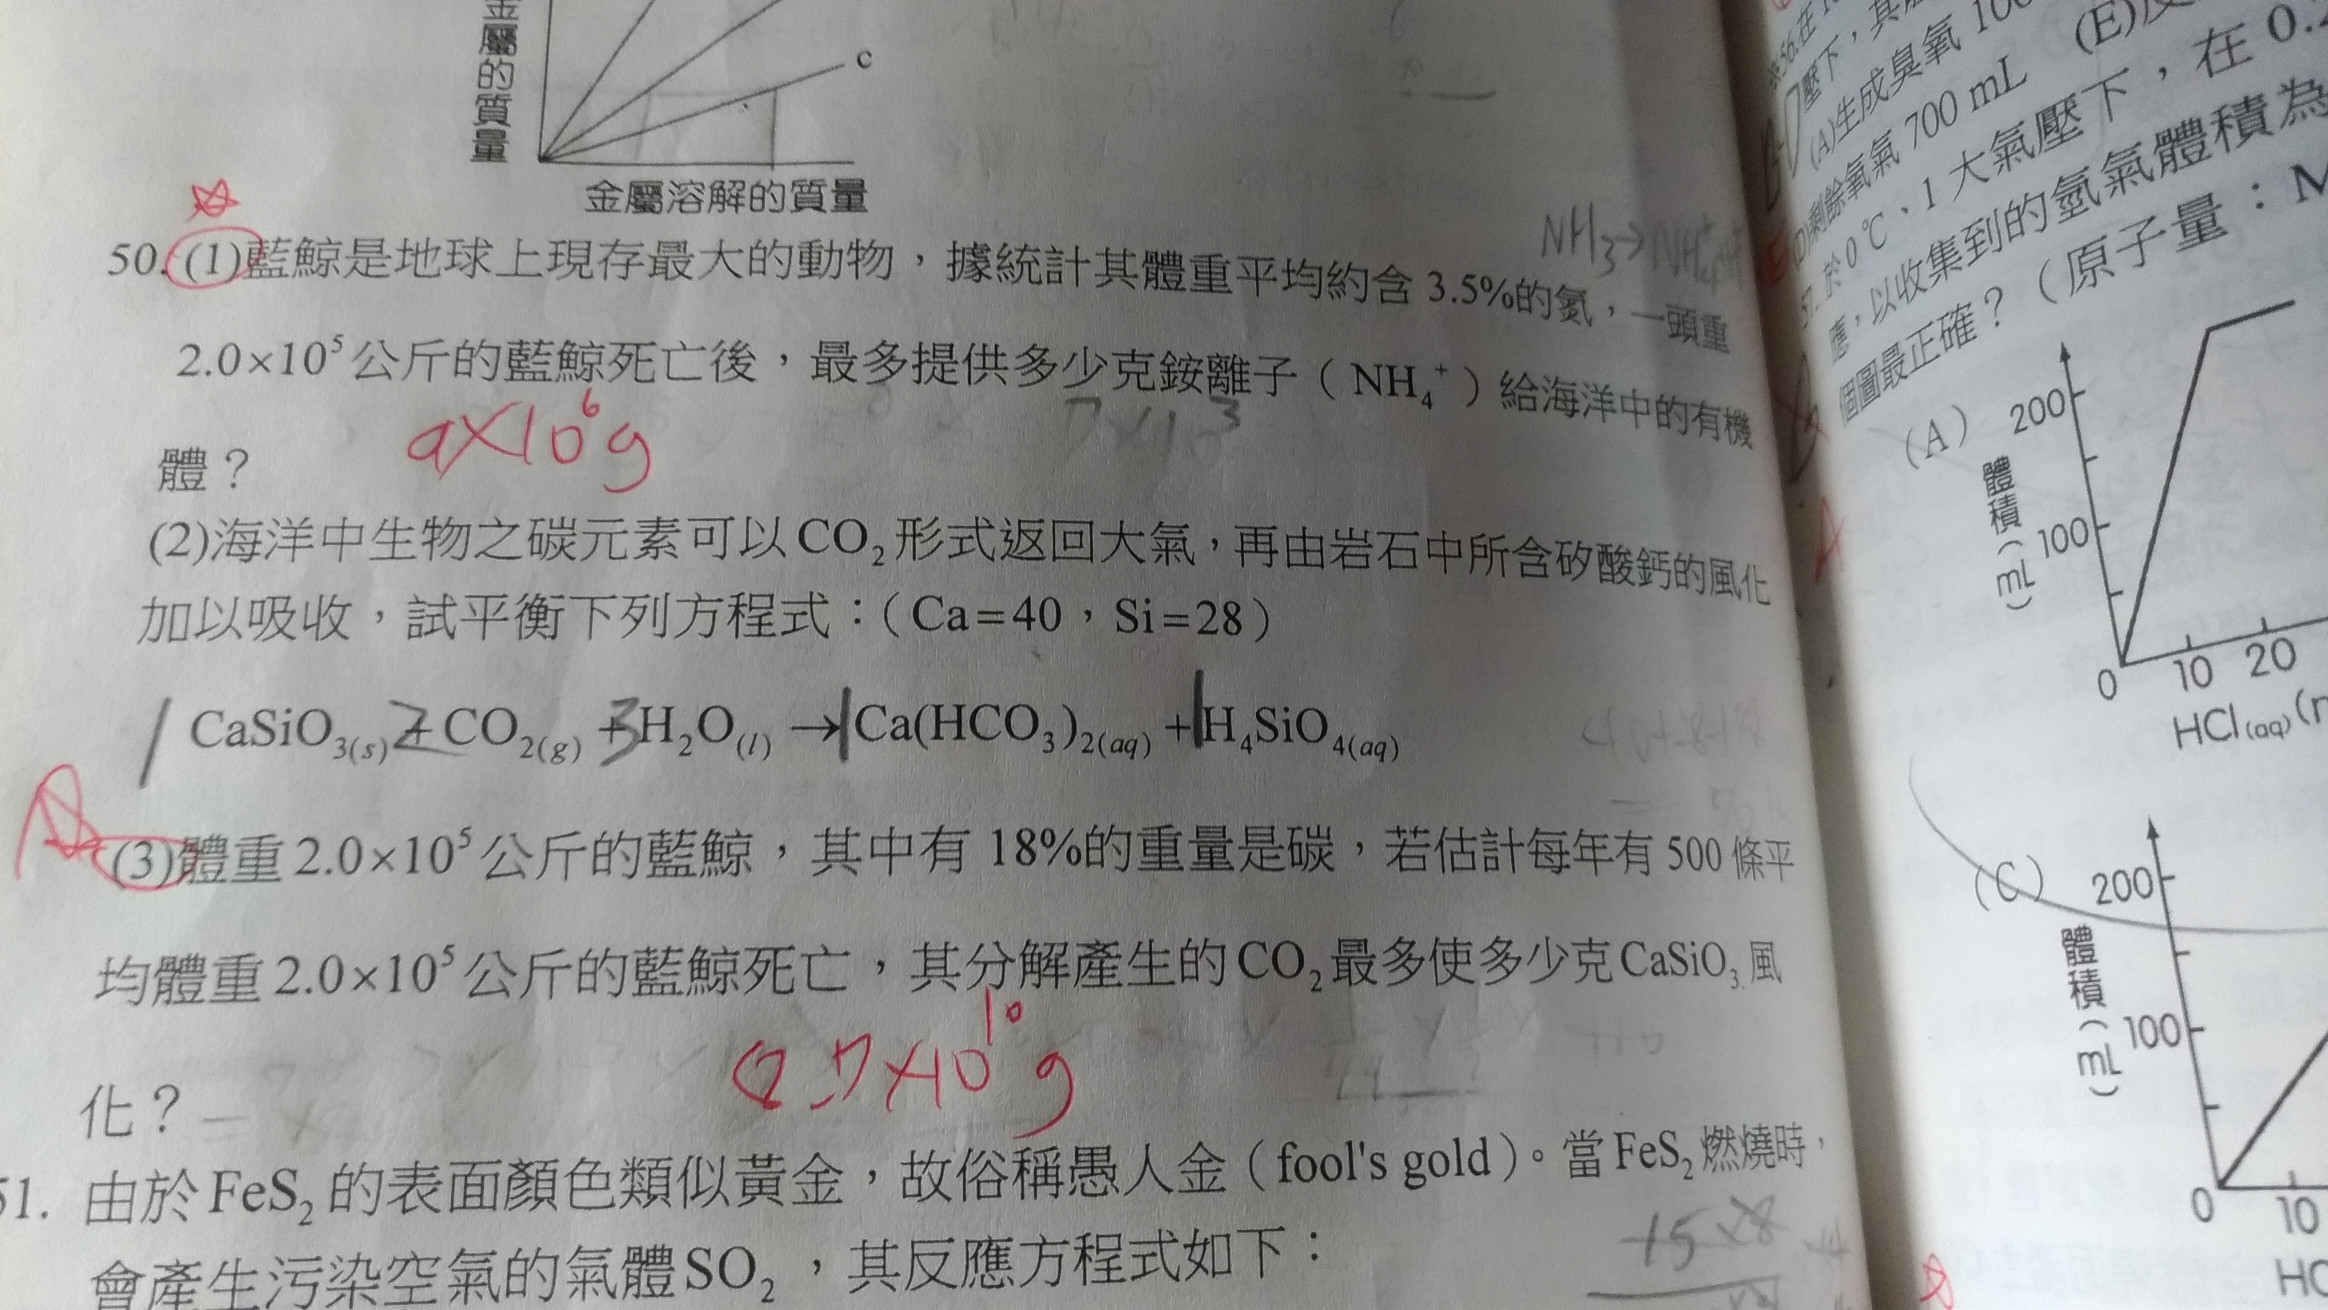 金屬的質量
c
金屬溶解的質量
NH₃→NH₄⁺
50.(1)藍鯨是地球上現存最大的動物，據統計其體重平均約含 3.5%的氮，一頭重
2.0×10⁵公斤的藍鯨死亡後，最多提供多少克銨離子（NH₄⁺）給海洋中的有機
7×10³
體？
9×10⁶g
(2)海洋中生物之碳元素可以CO₂形式返回大氣，再由岩石中所含矽酸鈣的風化
加以吸收，試平衡下列方程式：（Ca=40，Si=28）
1 CaSiO₃(s) + 2 CO₂(g) + 3 H₂O(l) → 1 Ca(HCO₃)₂(aq) + 1 H₄SiO₄(aq)
(3)體重2.0×10⁵公斤的藍鯨，其中有 18%的重量是碳，若估計每年有 500 條平
均體重2.0×10⁵公斤的藍鯨死亡，其分解產生的CO₂最多使多少克CaSiO₃風
化？
8.7×10¹⁰g
51. 由於FeS₂的表面顏色類似黃金，故俗稱愚人金（fool's gold）。當FeS₂燃燒時，
會產生污染空氣的氣體SO₂，其反應方程式如下：
※56.在
壓下，其
(A)生成臭氧 100
(D)剩餘氧氣 700 mL (E)反
57. 於0℃、1大氣壓下，在0.2
應，以收集到的氫氣體積為
個圖最正確？（原子量：M
(A)
200
100
體積(mL)
0 10 20
HCl(aq)(
(C)
200
100
體積(mL)
0 10
HC